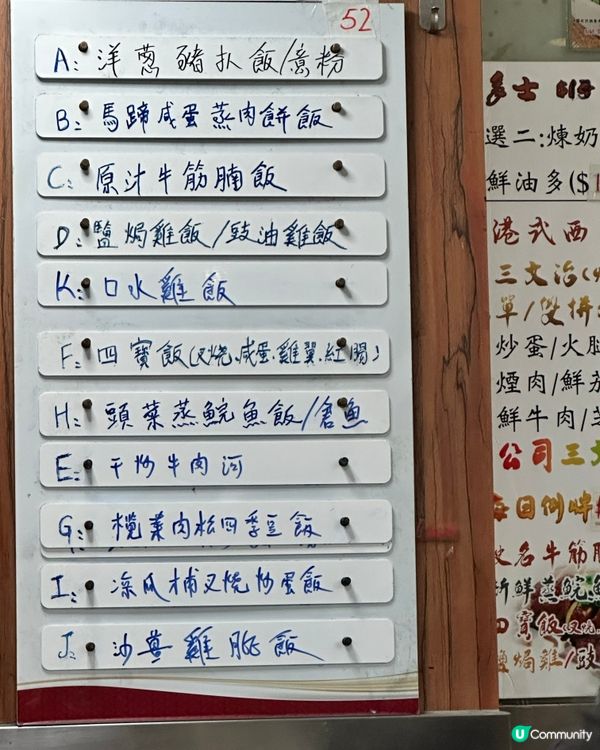 52
A: 洋蔥豬扒飯/意粉
B: 馬蹄咸蛋蒸肉餅飯
C: 原汁牛筋腩飯
D: 鹽焗雞飯/豉油雞飯
K: 口水雞飯
F: 四寶飯(叉燒.咸蛋.雞翼.紅腸)
H: 頭菜蒸鯇魚飯/倉魚
E: 干炒牛肉河
G: 欖菜肉松四季豆飯
I: 凉瓜楠叉燒炒蛋飯
J: 沙薑雞脾飯
多士
選二:煉奶
鮮油多($1
港式西
三文治(
單/雙拼
炒蛋/火腿
煙肉/鮮茄
鮮牛肉/芝
公司三文
每日例牌
牛筋腩
新鮮蒸鯇魚
四寶飯(叉燒
鹽焗雞/豉
U Community